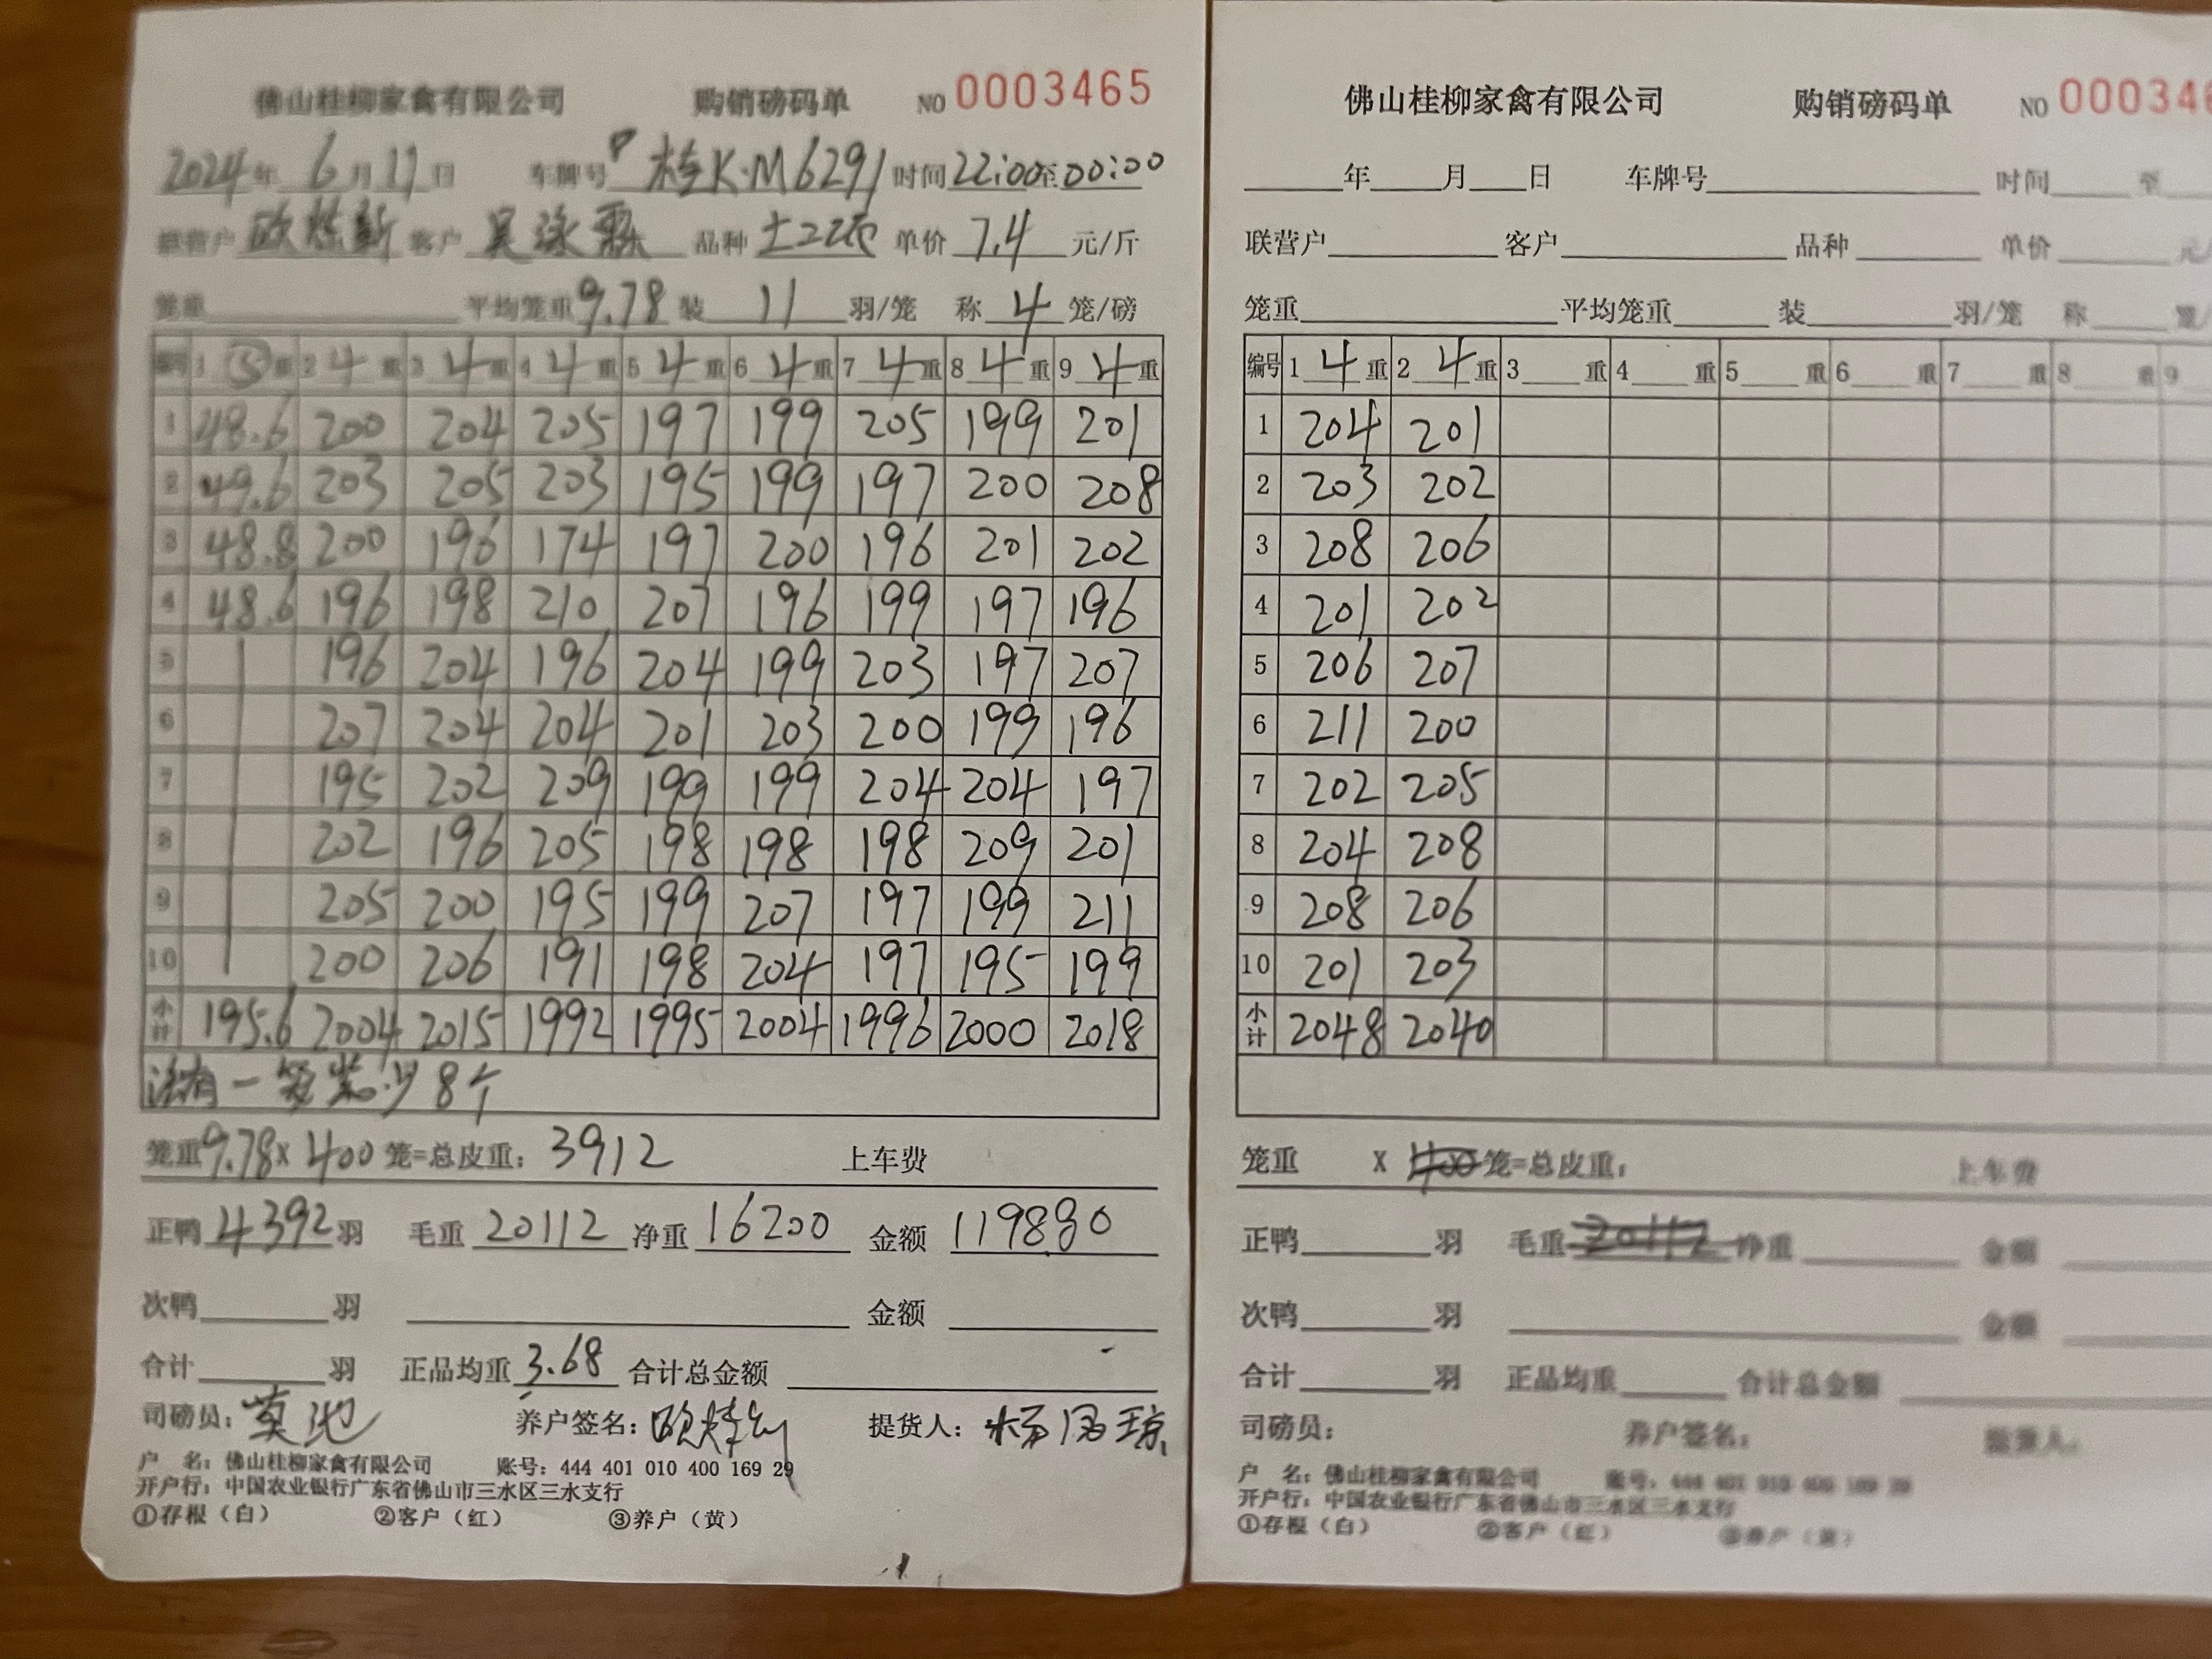 佛山桂柳家禽有限公司 购销磅码单 NO 0003465
2024年 6月11日 车牌号 桂K·M6291 时间22:00至00:00
联营户 客户 吴泳 品种 土二 单价 7.4 元/斤
笼重 平均笼重9.78 装 11 羽/笼 称 4 笼/磅
编号 1 ⑤ 重 2 4 重 3 4 重 4 4 重 5 4 重 6 4 重 7 4 重 8 4 重 9 4 重
1 48.6 200 204 205 197 199 205 199 201
2 49.6 203 205 203 195 199 197 200 208
3 48.8 200 196 174 197 200 196 201 202
4 48.6 196 198 210 207 196 199 197 196
5 196 204 196 204 199 203 197 207
6 207 204 204 201 203 200 199 196
7 195 202 209 199 199 204 204 197
8 202 196 205 198 198 198 209 201
9 205 200 195 199 207 197 199 211
10 200 206 191 198 204 197 195 199
小计 195.6 2004 2015 1992 1995 2004 1996 2000 2018
有一笼装少8个
笼重9.78X 400 笼=总皮重: 3912 上车费
正鸭4392羽 毛重 20112 净重 16200 金额 119880
次鸭 羽 金额
合计 羽 正品均重 3.68 合计总金额
司磅员: 莫池 养户签名: 提货人: 杨
户 名: 佛山桂柳家禽有限公司 账号: 444 401 010 400 169 29
开户行: 中国农业银行广东省佛山市三水区三水支行
①存根（白） ②客户（红） ③养户（黄）
佛山桂柳家禽有限公司 购销磅码单 NO 00034
年 月 日 车牌号 时间 至
联营户 客户 品种 单价 元/
笼重 平均笼重 装 羽/笼 称 笼/
编号 1 4 重 2 4 重 3 重 4 重 5 重 6 重 7 重 8 重 9
1 204 201
2 203 202
3 208 206
4 201 202
5 206 207
6 211 200
7 202 205
8 204 208
9 208 206
10 201 203
小计 2048 2040
笼重 X 400 笼=总皮重: 上车费
正鸭 羽 毛重 20112 净重 金额
次鸭 羽 金额
合计 羽 正品均重 合计总金额
司磅员: 养户签名: 提货人:
户 名: 佛山桂柳家禽有限公司 账号: 444 401 010 400 169 29
开户行: 中国农业银行广东省佛山市三水区三水支行
①存根（白） ②客户（红） ③养户（黄）